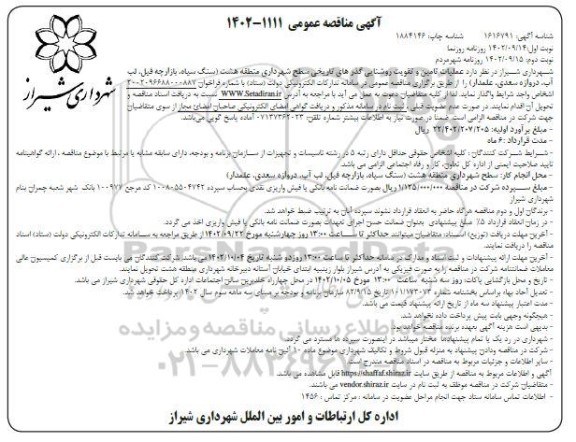 آگهی مناقصه عمومی ۱۱۱۱-۱۴۰۲
شناسه آگهی: ۱۶۱۶۷۹۱ شناسه چاپ: ۱۸۸۴۱۴۶
نوبت اول: ۱۴۰۲/۰۹/۱۴ روزنامه روزنما
نوبت دوم: ۱۴۰۲/۰۹/۱۵ روزنامه شهرمردم
شهرداری شیراز
شهرداری شیراز در نظر دارد عملیات تامین و تقویت روشنایی گذر های تاریخی سطح شهرداری منطقه هشت (سنگ سیاه، بازارچه فیل، لب
آب، دروازه سعدی، علمدار) را از طریق برگزاری مناقصه عمومی در سامانه تدارکات الکترونیکی دولت (ستاد) با شماره فراخوان ۲۰۰۲۰۹۶۶۸۸۰۰۰۸۸۷ به
اشخاص واجد شرایط واگذار نماید. لذا از کلیه متقاضیان دعوت به عمل می آید با مراجعه به آدرس WWW.Setadiran.ir نسبت به دریافت اسناد مناقصه و
تحویل آن اقدام نمایند. در صورت عدم عضویت قبلی، ثبت نام در سامانه مذکور و دریافت گواهی امضای الکترونیکی صاحبان امضای مجاز از سوی متقاضیان
جهت شرکت در مناقصه الزامی است. ضمنا در صورت نیاز به اطلاعات بیشتر شماره تلفن: ۰۷۱۳۷۳۶۲۰۲۳ آماده پاسخ گویی می باشد.
- مبلغ برآورد اولیه: ۲۲/۴۰۲/۷۰۷/۲۰۵ ریال
- مدت قرارداد: ۶ ماه
- شرایط شرکت کنندگان: کلیه اشخاص حقوقی حداقل دارای رتبه ۵ در رشته تاسیسات و تجهیزات از سازمان برنامه و بودجه دارای سابقه مشابه یا مرتبط با موضوع مناقصه، ارائه گواهینامه
تایید صلاحیت ایمنی از اداره کل تعاون، کار و رفاه اجتماعی الزامی می باشد.
- محل انجام کار: سطح شهرداری منطقه هشت (سنگ سیاه، بازارچه فیل، لب آب، دروازه سعدی، علمدار)
- مبلغ سپرده شرکت در مناقصه ۱/۱۲۵/۰۰۰/۰۰۰ ریال بصورت ضمانت نامه بانکی یا فیش واریزی نقدی بحساب سپرده ۱۰۰۸۰۵۵۰۴۷۴۲ کد مرجع ۱۰۰۹۷۷ بانک شهر شعبه چمران بنام
شهرداری شیراز
- برندگان اول و دوم مناقصه هرگاه حاضر به انعقاد قرارداد نشوند سپرده آنان به ترتیب ضبط خواهد شد.
- در زمان انعقاد قرارداد ۵٪ مبلغ پیشنهادی بعنوان ضمانت حسن اجرای تعهدات بصورت ضمانت نامه بانکی یا فیش واریزی اخذ می گردد.
- آخرین مهلت دریافت (توزیع) اسناد: متقاضیان میتوانند حداکثر تا ساعت ۱۳:۰۰ روز چهارشنبه مورخ ۱۴۰۲/۰۹/۲۲ از طریق مراجعه به سامانه تدارکات الکترونیکی دولت (ستاد) اسناد
مناقصه را دریافت نمایند.
- آخرین مهلت ارائه پیشنهادات و ثبت اسناد و مدارک در سامانه حداکثر تا ساعت ۱۳:۰۰ روز دو شنبه تاریخ ۱۴۰۲/۱۰/۰۴ می باشد. شرکت کنندگان می بایست قبل از برگزاری کمیسیون عالی
معاملات ضمانتنامه شرکت در مناقصه را به صورت فیزیکی به آدرس شیراز بلوار زینبیه ابتدای خیابان آستانه دبیرخانه شهرداری منطقه هشت تحویل نمایند.
- تاریخ و محل بازگشایی پاکات: روز سه شنبه ساعت ۱۳:۰۰ مورخ ۱۴۰۲/۱۰/۰۵ در محل چهارراه خلدبرین سالن اجتماعات اداره کل حقوقی شهرداری شیراز می باشد.
- تعدیل آحاد بها، براساس بخشنامه شماره ۱۰۱/۱۷۳۰۷۳ تاریخ ۸۲/۹/۱۵ سازمان برنامه و بودجه بر مبنای سه ماهه سوم سال ۱۴۰۲ پرداخت خواهد شد.
- مدت اعتبار پیشنهاد سه ماه از تاریخ ارائه پیشنهاد قیمت می باشد.
- هیچگونه وجهی بابت پیش پرداخت داده نخواهد شد.
- بدیهی است هزینه آگهی بعهده برنده مناقصه خواهد بود.
- شهرداری در رد یک یا تمام پیشنهادها مختار میباشد در اینصورت سپرده ها مسترد می گردد.
- شرکت در مناقصه ودادن پیشنهاد به منزله قبول شروط و تکالیف شهرداری موضوع ماده ۱۰ آئین نامه معاملات شهرداری می باشد.
- سایر اطلاعات و جزئیات مربوط به مناقصه در اسناد مناقصه مندرج است.
آگهی و اطلاعات مربوط به مناقصه از طریق سایت https://shaffaf.shiraz.ir قابل مشاهده می باشد
- متقاضیان شرکت در مناقصه موظف به ثبت نام در سایت vendor.shiraz.ir می باشند.
- اطلاعات تماس سامانه ستاد جهت انجام مراحل عضویت در سامانه: مرکز تماس: ۱۴۵۶
اداره کل ارتباطات و امور بین الملل شهرداری شیراز